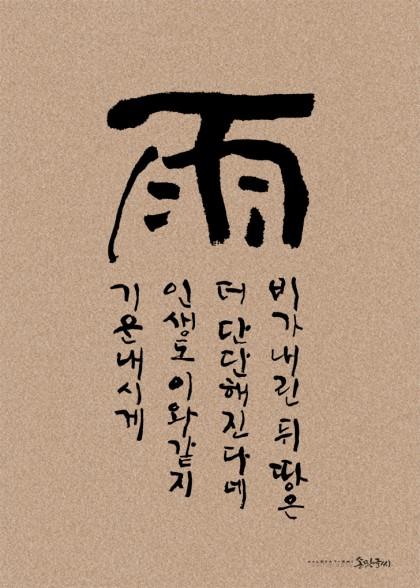 雨
비가내린뒤땅은
더단단해진다네
인생도이와같지
기운내시게